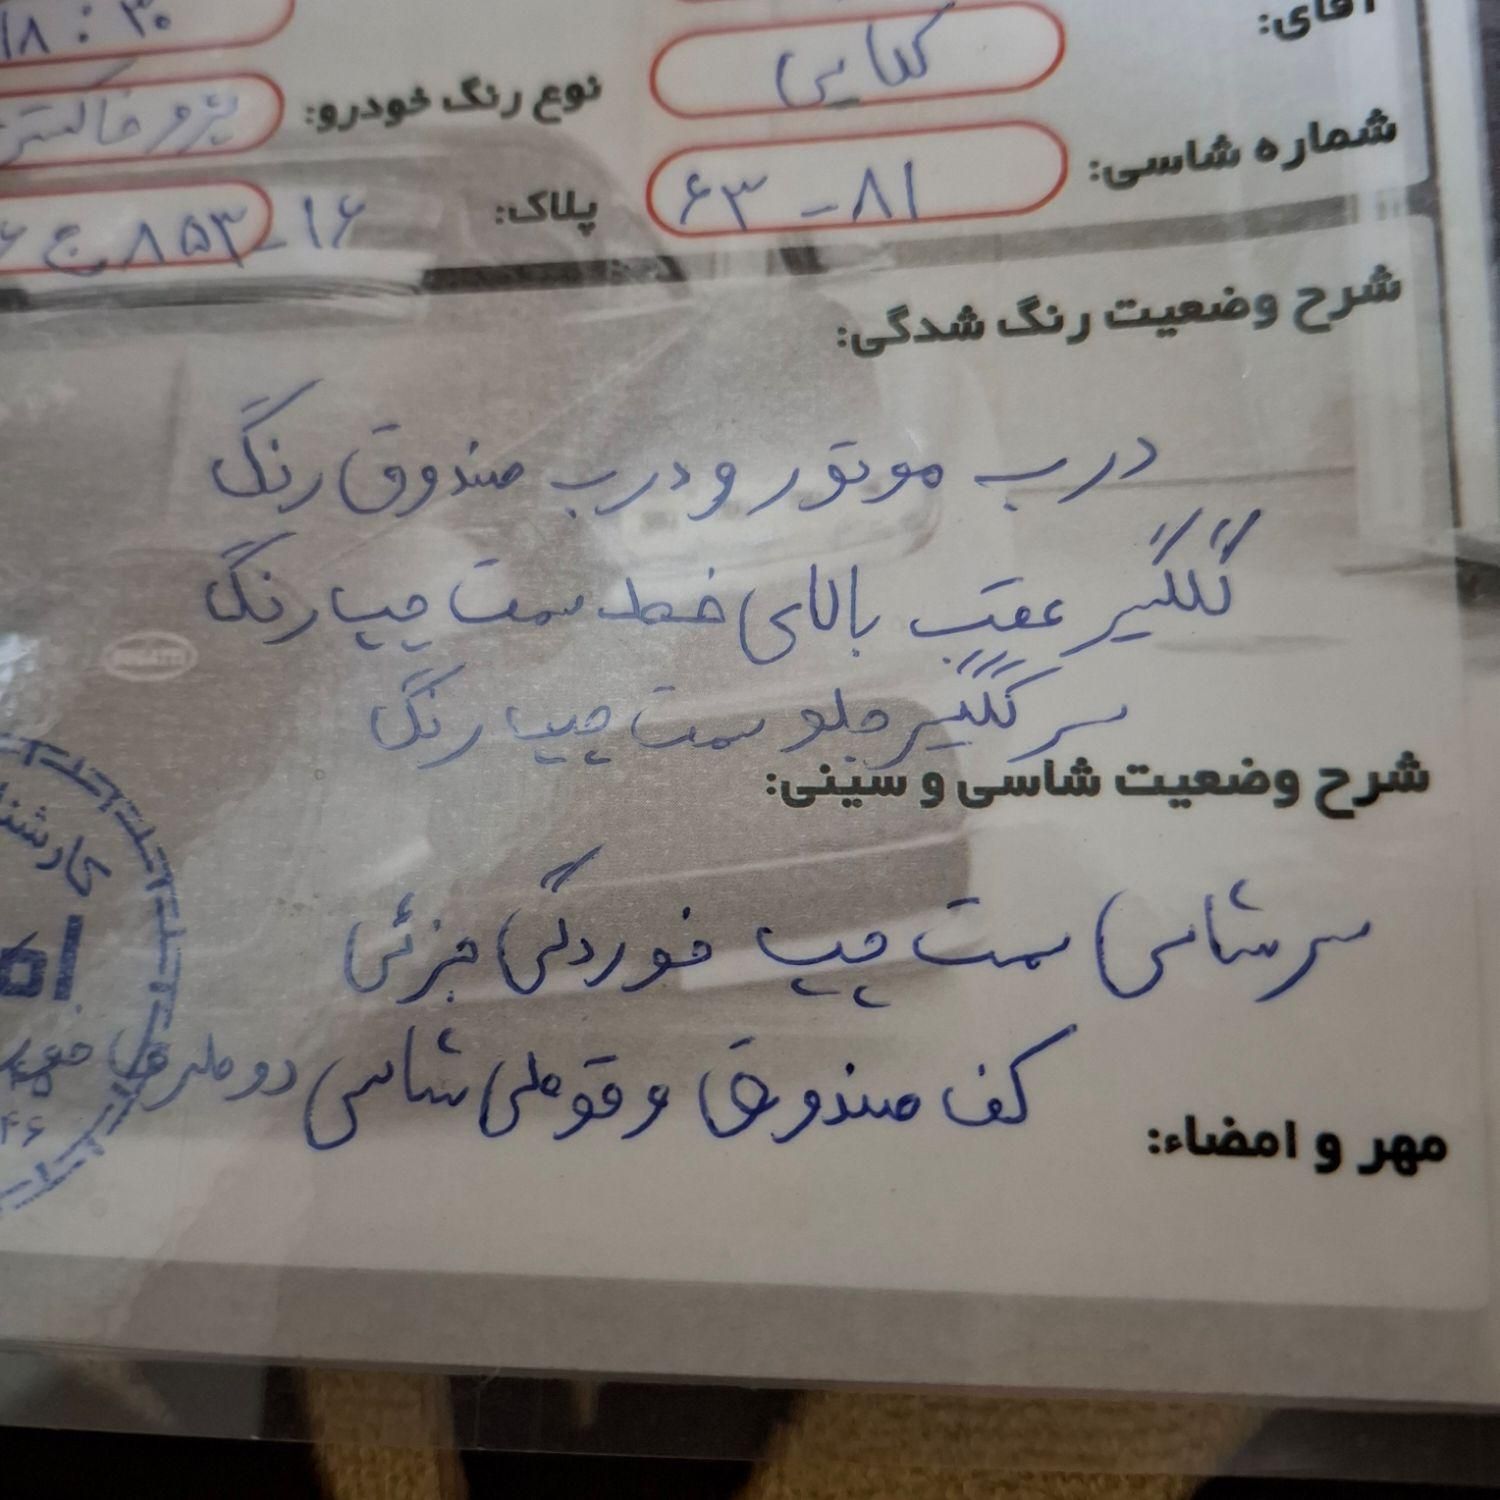 آقای:
۱۸:۳۰
نوع رنگ خودرو: پژو خاکستری
شماره شاسی: ۸۱-۶۳
پلاک: ۱۶-۸۵۳ج۶
شرح وضعیت رنگ شدگی:
درب موتور و درب صندوق رنگ
گلگیر عقب بالای خط سمت چپ رنگ
سر گلگیر جلو سمت چپ رنگ
شرح وضعیت شاسی و سینی:
سر شاسی سمت چپ خوردگی جزئی
کف صندوق و قوطی شاسی دو طرف
مهر و امضاء:
BUGATTI